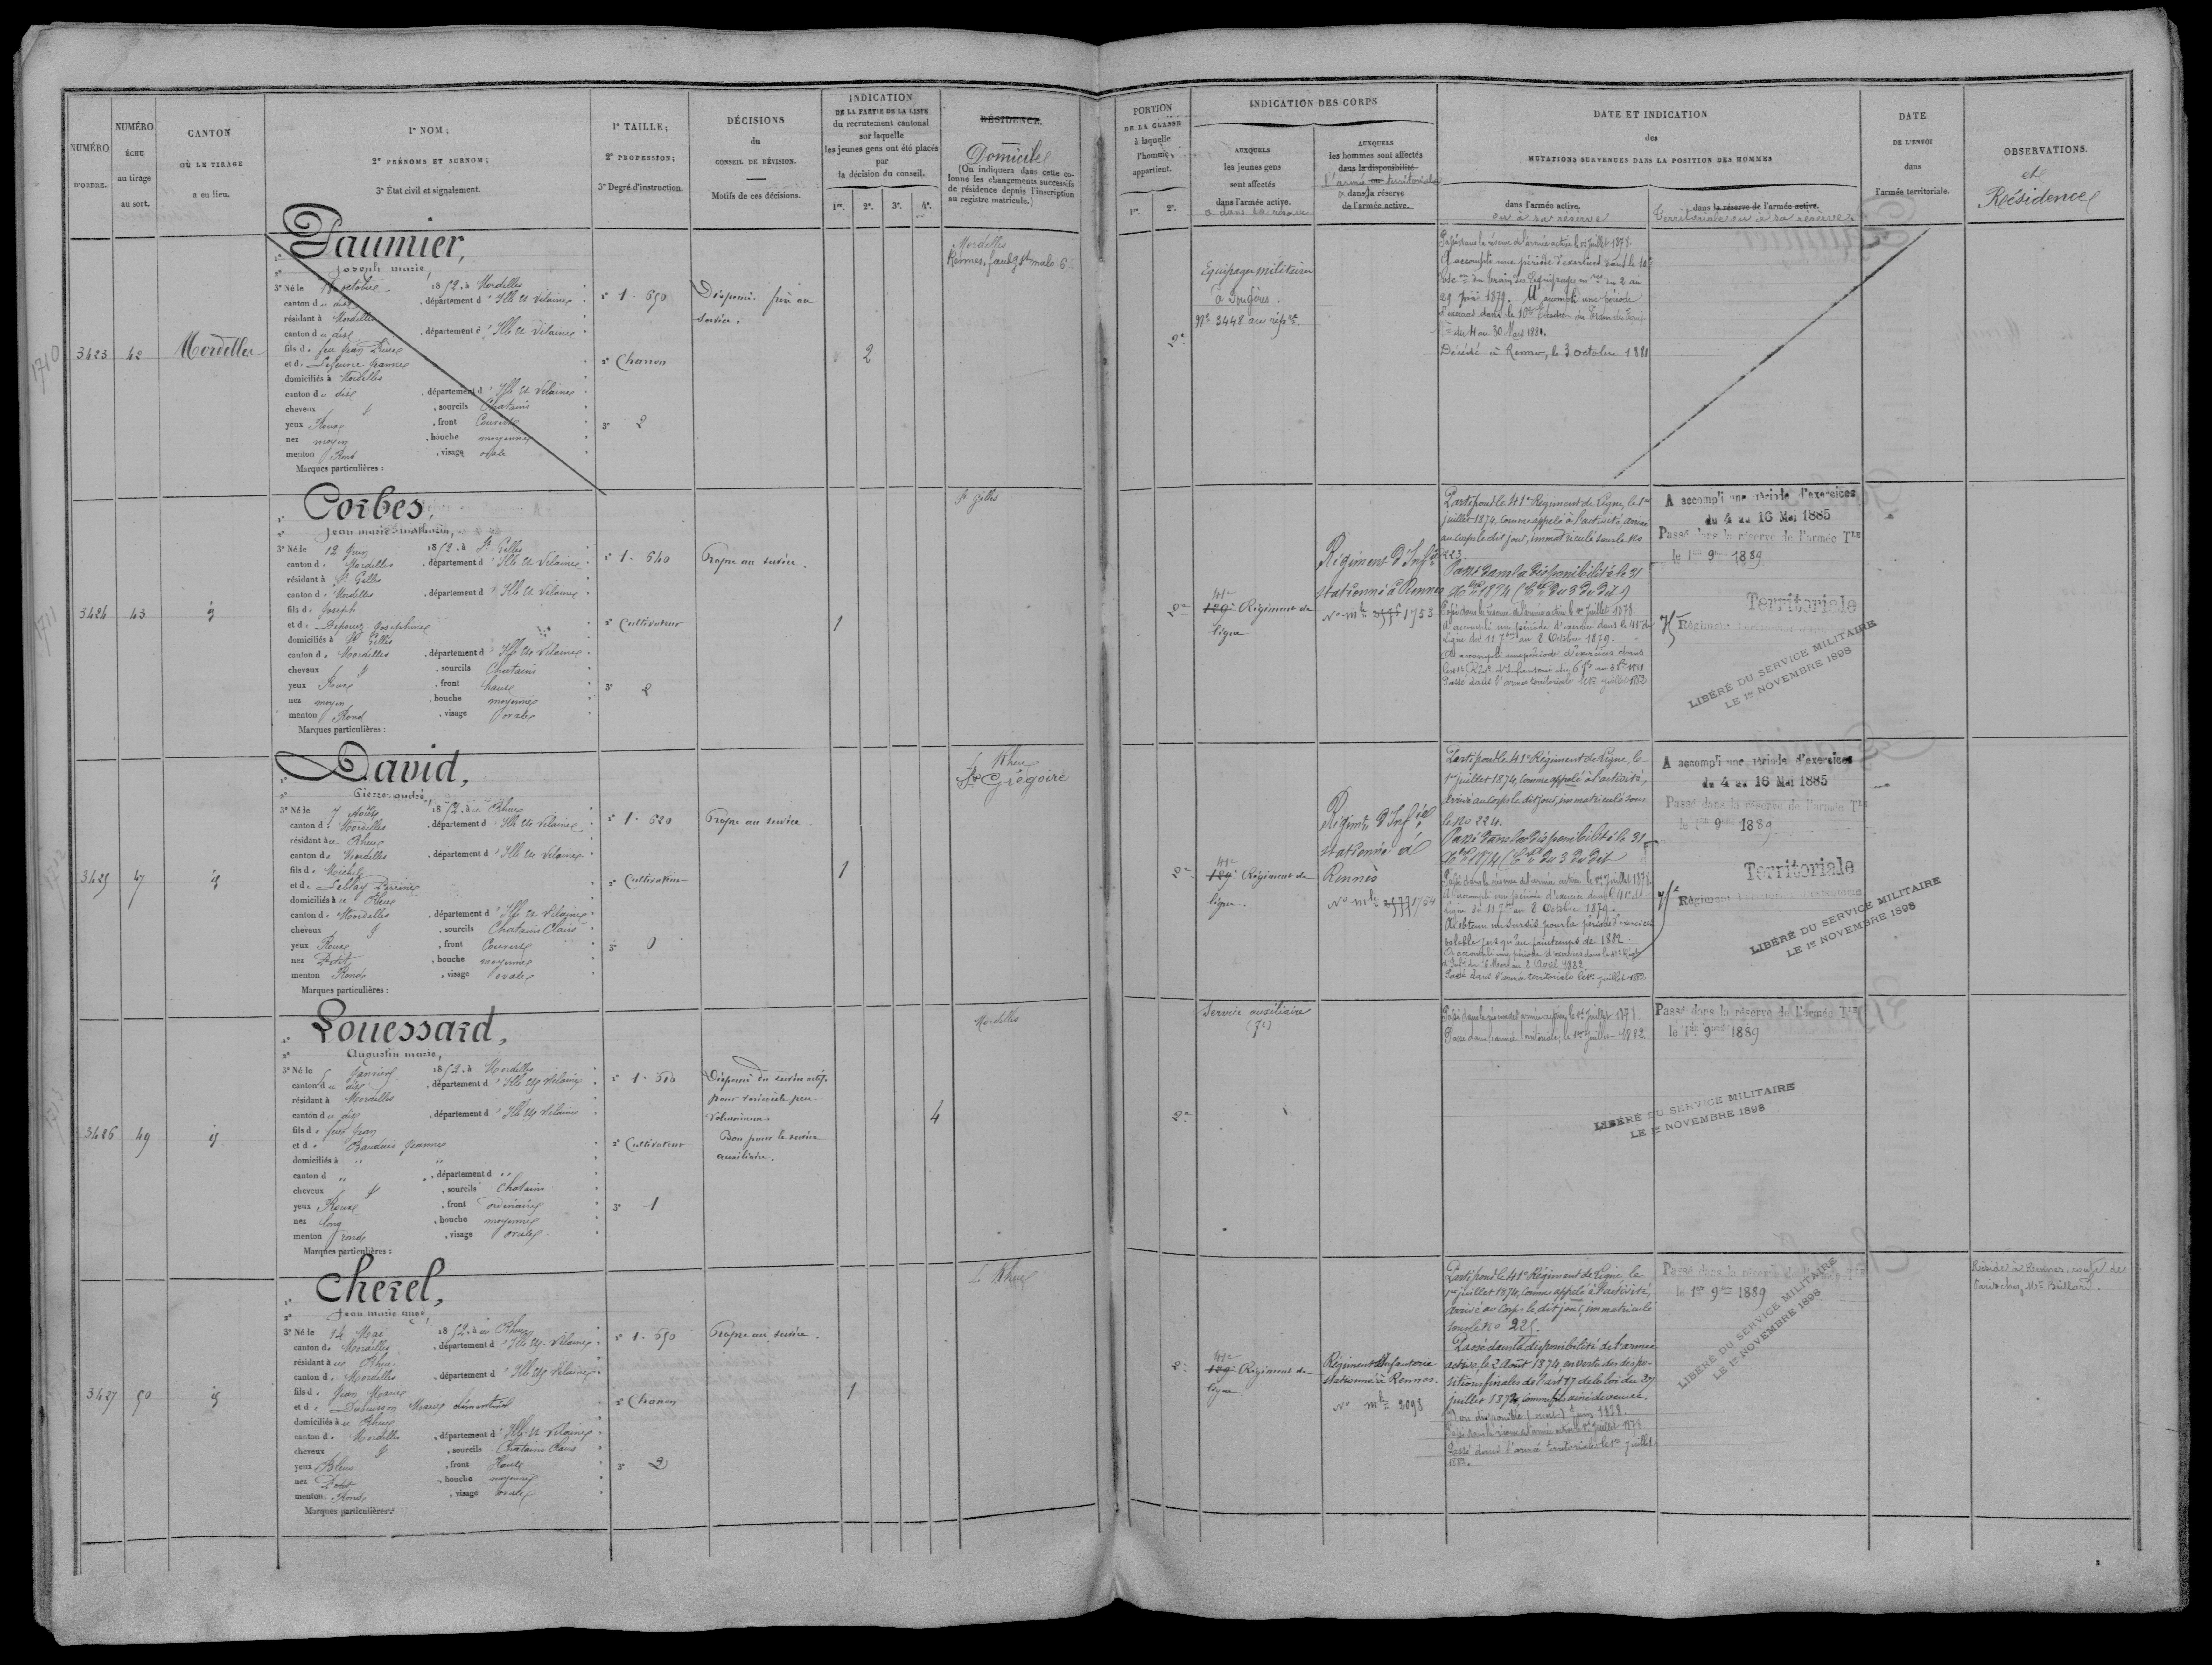 NUMÉRO
D'ORDRE.
NUMÉRO
échu
au tirage
au sort.
CANTON
OÙ LE TIRAGE
a eu lieu.
1° NOM;
2° PRÉNOMS ET SURNOM;
3° État civil et signalement.
1° TAILLE;
2° PROFESSION;
3° Degré d'instruction.
DÉCISIONS
du
CONSEIL DE RÉVISION.
Motifs de ces décisions.
INDICATION
DE LA PARTIE DE LA LISTE
du recrutement cantonal
sur laquelle
les jeunes gens ont été placés
par
la décision du conseil.
1re. 2e. 3e. 4e.
RÉSIDENCE.
Domicile
(On indiquera dans cette co-
lonne les changements successifs
de résidence depuis l'inscription
au registre matricule.)
PORTION
DE LA CLASSE
à laquelle
l'homme
appartient.
1re. 2e.
INDICATION DES CORPS
AUXQUELS
les jeunes gens
sont affectés
dans l'armée active.
o dans la réserve
AUXQUELS
les hommes sont affectés
dans la disponibilité
l'armée ou territoriale
o dans la réserve
de l'armée active.
DATE ET INDICATION
des
MUTATIONS SURVENUES DANS LA POSITION DES HOMMES
dans l'armée active.
ou à sa réserve
dans la réserve de l'armée active.
Territoriale ou à sa réserve
DATE
DE L'ENVOI
dans
l'armée territoriale.
OBSERVATIONS.
et
Résidence
1710
3423 42 Mordelles
Paumier,
Joseph marie,
3° Né le octobre 1852, à Mordelles
canton du dit, département d'Ille et Vilaine
résidant à Mordelles
canton du dit, département d'Ille et Vilaine
fils de feu Jean Pierre
et de Lefeuvre Jeanne
domiciliés à Mordelles
canton du dit, département d'Ille et Vilaine
cheveux et, sourcils Chatains
yeux Roux, front Couvert
nez moyen, bouche moyenne
menton Rond, visage ovale
Marques particulières :
1° 1.650
2° Charron
3° 2
Dispensé. frère au
service.
2
Mordelles
Rennes, faubg St malo 6
2e
Equipages militaires
à Fougères.
No 3448 au rép re
Passé dans la réserve de l'armée active le 1er Juillet 1878.
A accompli une période d'exercices dans le 10e
29 1879. A accompli une période
d'exercices dans le 10me Escadron du Train des Equip.
du 4 au 30 Mars 1881.
Décédé à Rennes, le 3 octobre 1881
1711
3424 43 id
Corbes,
Jean marie mathurin,
3° Né le 12 Juin 1852, à St Gilles
canton de Mordelles, département d'Ille et Vilaine
résidant à St Gilles
canton de Mordelles, département d'Ille et Vilaine
fils de Joseph
et de Joséphine
domiciliés à St Gilles
canton de Mordelles, département d'Ille et Vilaine
cheveux et, sourcils Chatains
yeux Roux, front haut
nez moyen, bouche moyenne
menton Rond, visage ovale
Marques particulières :
1° 1.640
2° Cultivateur
3° 2
Propre au service.
1
St Gilles
2e
41e
129e Régiment de
ligne
Régiment d'Infie
stationné à Rennes
No mle 1753
Parti pour le 41e Régiment de Ligne, le 1er
juillet 1874, comme appelé à l'activité, arrivé
au corps le dit jour, immatriculé sous le No
223
Passé dans la disponibilité le 31
Xbre 1874 (Cre du 3 du dit)
Passé dans la réserve de l'armée active le 1er Juillet 1878.
A accompli une période d'exercices dans le 41e de
Ligne du 11 7bre au 8 Octobre 1879.
A accompli une période d'exercices dans
Passé dans l'armée territoriale le 1er juillet 1882
A accompli une période d'exercices
du 4 au 16 Mai 1885
Passé dans la réserve de l'armée Tle
le 1er 9bre 1889
Territoriale
75 Régiment
LIBÉRÉ DU SERVICE MILITAIRE
LE 1er NOVEMBRE 1898
1712
3425 47 id
David,
Pierre andré,
3° Né le 7 Août 1852, à Le Rheu
canton de Mordelles, département d'Ille et Vilaine
résidant à Le Rheu
canton de Mordelles, département d'Ille et Vilaine
fils de Michel
et de Leblay Perrine
domiciliés à Le Rheu
canton de Mordelles, département d'Ille et Vilaine
cheveux et, sourcils Chatains Clairs
yeux Roux, front Couvert
nez Petit, bouche moyenne
menton Rond, visage ovale
Marques particulières :
1° 1.620
2° Cultivateur
3° 0
Propre au service
1
Le Rheu
St Grégoire
2e
41e
129e Régiment de
ligne.
Régimt d'Infie
stationné à
Rennes
No mle 1754
Parti pour le 41e Régiment de Ligne, le
1er juillet 1874, comme appelé à l'activité,
arrivé au corps le dit jour, immatriculé sous
le No 224.
Passé dans la disponibilité le 31
Xbre 1874 (Cre du 3 du dit
Passé dans la réserve de l'armée active le 1er Juillet 1878.
A accompli une période d'exercices dans le 41e de
Ligne du 11 7bre au 8 Octobre 1879.
A obtenu un sursis pour la période d'exercices
valable jusqu'au printemps de 1882.
A accompli une période d'exercices dans le 41e Régt
d'Infie du 6 Mars au 2 Avril 1882
Passé dans l'armée territoriale le 1er juillet 1882
A accompli une période d'exercices
du 4 au 16 Mai 1885
Passé dans la réserve de l'armée Tle
le 1er 9bre 1889
Territoriale
75e Régiment
LIBÉRÉ DU SERVICE MILITAIRE
LE 1er NOVEMBRE 1898
1713
3426 49 id
Louessard,
Augustin marie,
3° Né le 5 Janvier 1852, à Mordelles
canton du dit, département d'Ille et Vilaine
résidant à Mordelles
canton du dit, département d'Ille et Vilaine
fils de feu Jean
et de Baudais Jeanne
domiciliés à " "
canton d " ", département d "
cheveux et, sourcils Chatains
yeux Roux, front ordinaire
nez long, bouche moyenne
menton rond, visage ovale
Marques particulières :
2° Cultivateur
3° 1
Dispensé du service actif.
pour varicocèle peu
volumineux.
Bon pour le service
auxiliaire.
4
Mordelles
2e
Service auxiliaire
Passé dans la réserve de l'armée active, le 1er Juillet 1878.
Passé dans l'armée territoriale, le 1er Juillet 1882
Passé dans la réserve de l'armée Tle
le 1er 9bre 1889
LIBÉRÉ DU SERVICE MILITAIRE
LE 1er NOVEMBRE 1898
3427 50 id
Cherel,
Jean marie ange,
3° Né le 14 Mai 1852, à Le Rheu
canton de Mordelles, département d'Ille et Vilaine
résidant à Le Rheu
canton de Mordelles, département d'Ille et Vilaine
fils de Jean Marie
et de Dubuisson Marie
domiciliés à Le Rheu
canton de Mordelles, département d'Ille et Vilaine
cheveux et, sourcils Chatains Clairs
yeux Bleus, front Haut
nez Petit, bouche moyenne
menton Rond, visage ovale
Marques particulières:
1° 1.650
2° Charron
3° 2
Propre au service.
1
Le Rheu
2e
41e
129e Régiment de
ligne.
Régiment d'Infanterie
stationné à Rennes.
No mle 2098
Parti pour le 41e Régiment de Ligne le
1er juillet 1874, comme appelé à l'activité,
arrivé au corps le dit jour, immatriculé
sous le No 225.
Passé dans la disponibilité de l'armée
active, le 2 Août 1874, en vertu des dispo-
sitions finales de l'art 17 de la loi du 27
juillet 1872, comme fils aîné de veuve.
Non disponible (ouest) Juin 1878.
Passé dans la réserve de l'armée active le 1er Juillet 1878
Passé dans l'armée territoriale le 1er juillet
1882.
Passé dans la réserve de l'armée Tle
le 1er 9bre 1889
LIBÉRÉ DU SERVICE MILITAIRE
LE 1er NOVEMBRE 1898
Réside à Rennes, de
Paris chez Mr Brillard.